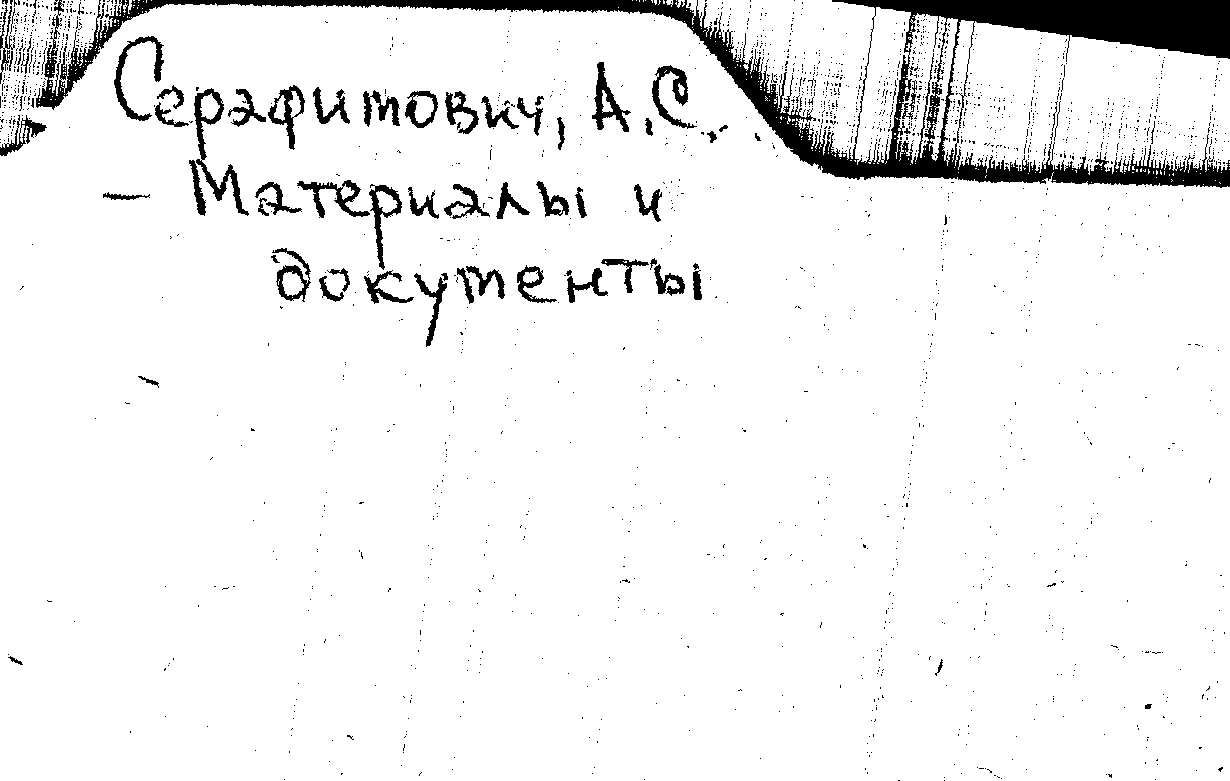 Серафимович, А.С.
— Материалы и
документы